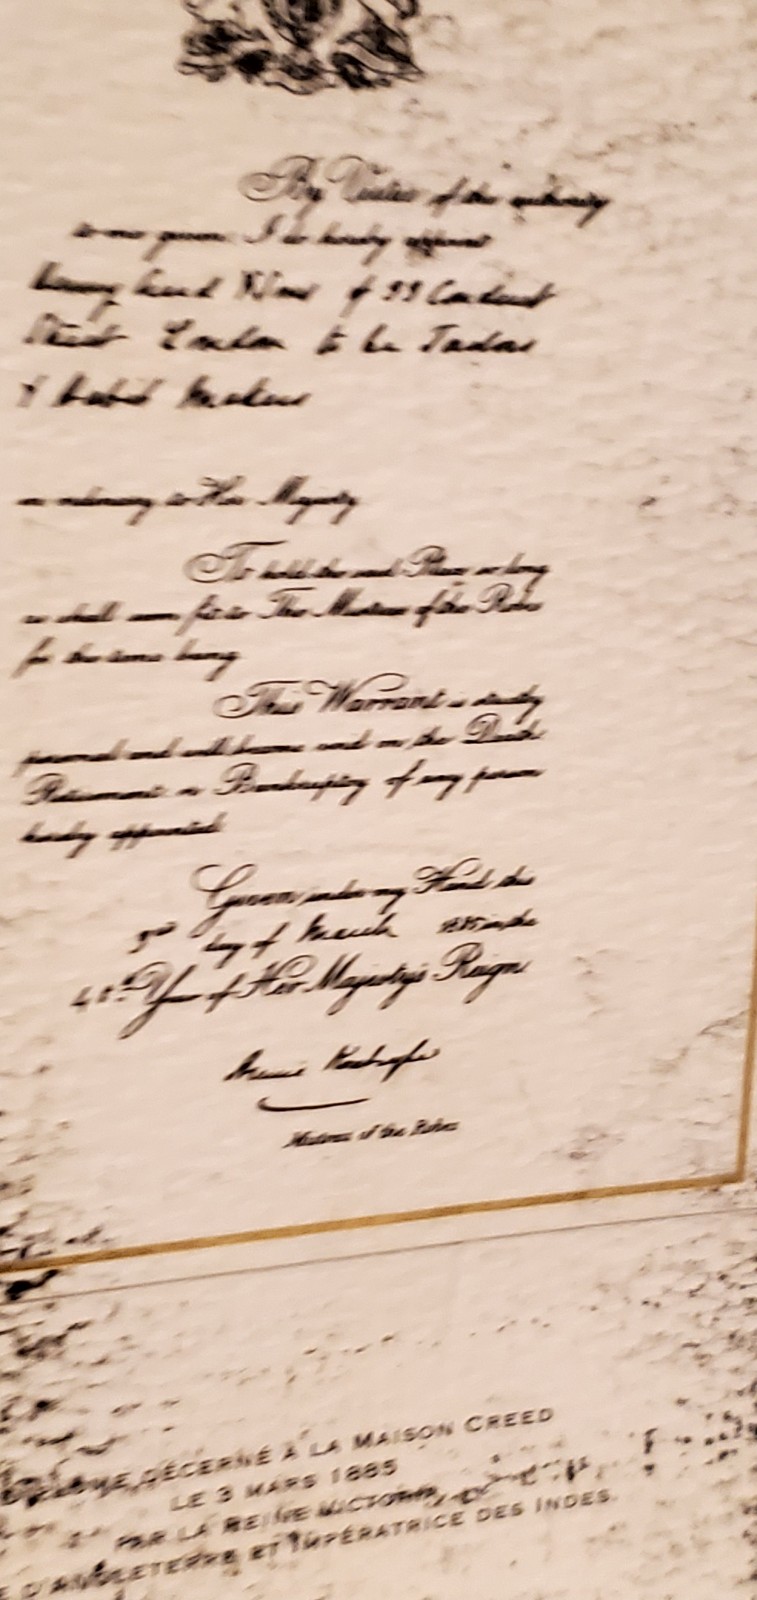 By Virtue of the authority
to me given I do hereby appoint
Henry Creed &  of 33 Conduit
Street London to be Tailors
& Habit Makers
in ordinary to Her Majesty
To hold the said Place so long
as shall seem fit to The Mistress of the Robes
for the time being
This Warrant is strictly
personal and will become void on the Death
Retirement or Bankruptcy of any person
hereby appointed
Given under my Hand this
3rd day of March 1885 in the
48th Year of Her Majesty's Reign
Mistress of the Robes
DÉCERNÉ À LA MAISON CREED
LE 3 MARS 1885
PAR LA REINE VICTORIA
D'ANGLETERRE ET IMPÉRATRICE DES INDES.